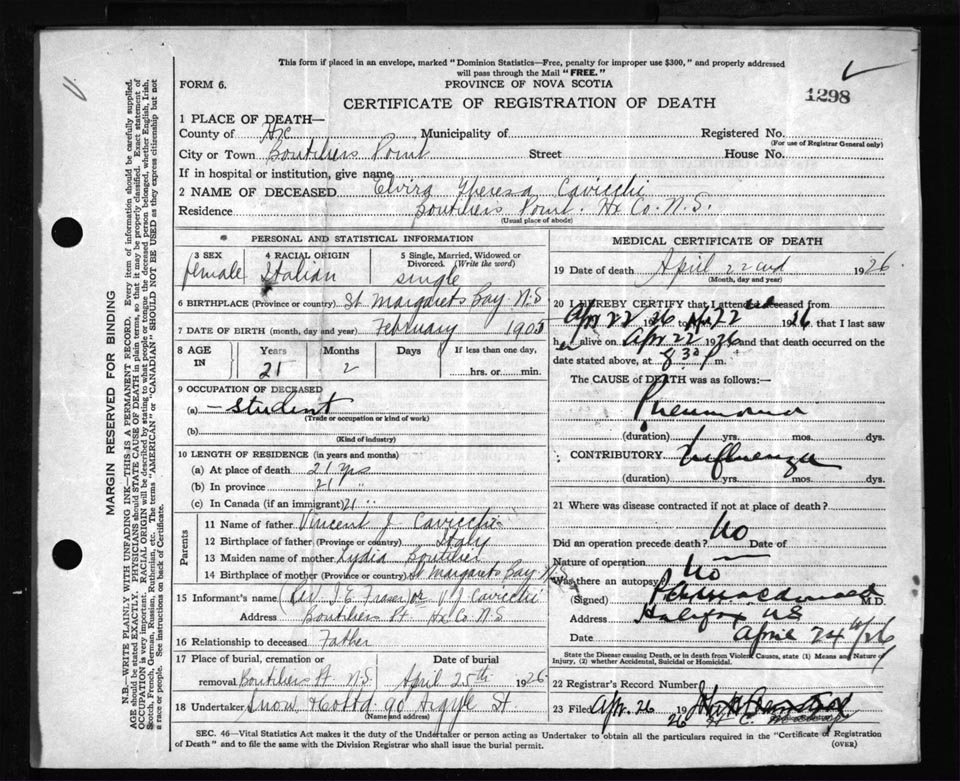 This form if placed in an envelope, marked "Dominion Statistics—Free, penalty for improper use $300," and properly addressed
will pass through the Mail "FREE."
FORM 6.
PROVINCE OF NOVA SCOTIA
1298
CERTIFICATE OF REGISTRATION OF DEATH
1 PLACE OF DEATH—
County of Hx Municipality of Registered No.
(For use of Registrar General only)
City or Town Boutiliers Point Street House No.
If in hospital or institution, give name
2 NAME OF DECEASED Elvira Theresa Cavicchi
Residence Boutiliers Point. Hx Co. N.S.
(Usual place of abode)
PERSONAL AND STATISTICAL INFORMATION
3 SEX
female
4 RACIAL ORIGIN
Italian
5 Single, Married, Widowed or Divorced. (Write the word)
single
6 BIRTHPLACE (Province or country) St. Margarets Bay N.S
7 DATE OF BIRTH (month, day and year) February 1905
8 AGE IN
Years Months Days If less than one day,
21 2 hrs. or min.
9 OCCUPATION OF DECEASED
(a) — Student
(Trade or occupation or kind of work)
(b)
(Kind of industry)
10 LENGTH OF RESIDENCE (in years and months)
(a) At place of death 21 yrs
(b) In province 21 "
(c) In Canada (if an immigrant) 21 "
Parents
11 Name of father Vincent J Cavicchi
12 Birthplace of father (Province or country) Italy
13 Maiden name of mother Lydia Boutilier
14 Birthplace of mother (Province or country) St Margarets Bay N.S
15 Informant's name Rev J E Fraser or V J Cavicchi
Address Boutiliers Pt Hx Co N S
16 Relationship to deceased Father
17 Place of burial, cremation or removal Boutiliers Pt N.S.
Date of burial
April 25th 1926
18 Undertaker Snow & Co Ltd 90 Argyle St.
(Name and address)
MEDICAL CERTIFICATE OF DEATH
19 Date of death April 22nd 1926.
(Month, day and year)
20 I HEREBY CERTIFY that I attended deceased from
Apr 22 1926 to Apr 22 1926, that I last saw
her alive on Apr 22 1926 and that death occurred on the
date stated above, at 8 30 p m.
The CAUSE of DEATH was as follows:—
Pneumonia
(duration) yrs. mos. dys.
CONTRIBUTORY Influenza
(duration) yrs. mos. dys.
21 Where was disease contracted if not at place of death?
Did an operation precede death? No Date of
Nature of operation —
Was there an autopsy? No
Signed Macdonald M.D.
Address Halifax NS
Date April 24th/26
State the Disease causing Death, or in death from Violent Causes, state (1) Means and Nature of
Injury, (2) whether Accidental, Suicidal or Homicidal.
22 Registrar's Record Number
23 Filed Apr. 26 19 26
SEC. 46—Vital Statistics Act makes it the duty of the Undertaker or person acting as Undertaker to obtain all the particulars required in the "Certificate of Registration
of Death" and to file the same with the Division Registrar who shall issue the burial permit.
(OVER)
MARGIN RESERVED FOR BINDING
N.B.—WRITE PLAINLY WITH UNFADING INK—THIS IS A PERMANENT RECORD. Every item of information should be carefully supplied.
AGE should be stated EXACTLY. PHYSICIANS should STATE CAUSE OF DEATH in plain terms, so that it may be properly classified. Exact statement of
OCCUPATION is very important. RACIAL ORIGIN will be described by stating to what people or tongue the deceased person belonged, whether English, Irish,
Scotch, French, German, Russian, Ruthenian, etc. The terms "AMERICAN" or "CANADIAN" SHOULD NOT BE USED as they express citizenship but not
a race or people. See instructions on back of Certificate.